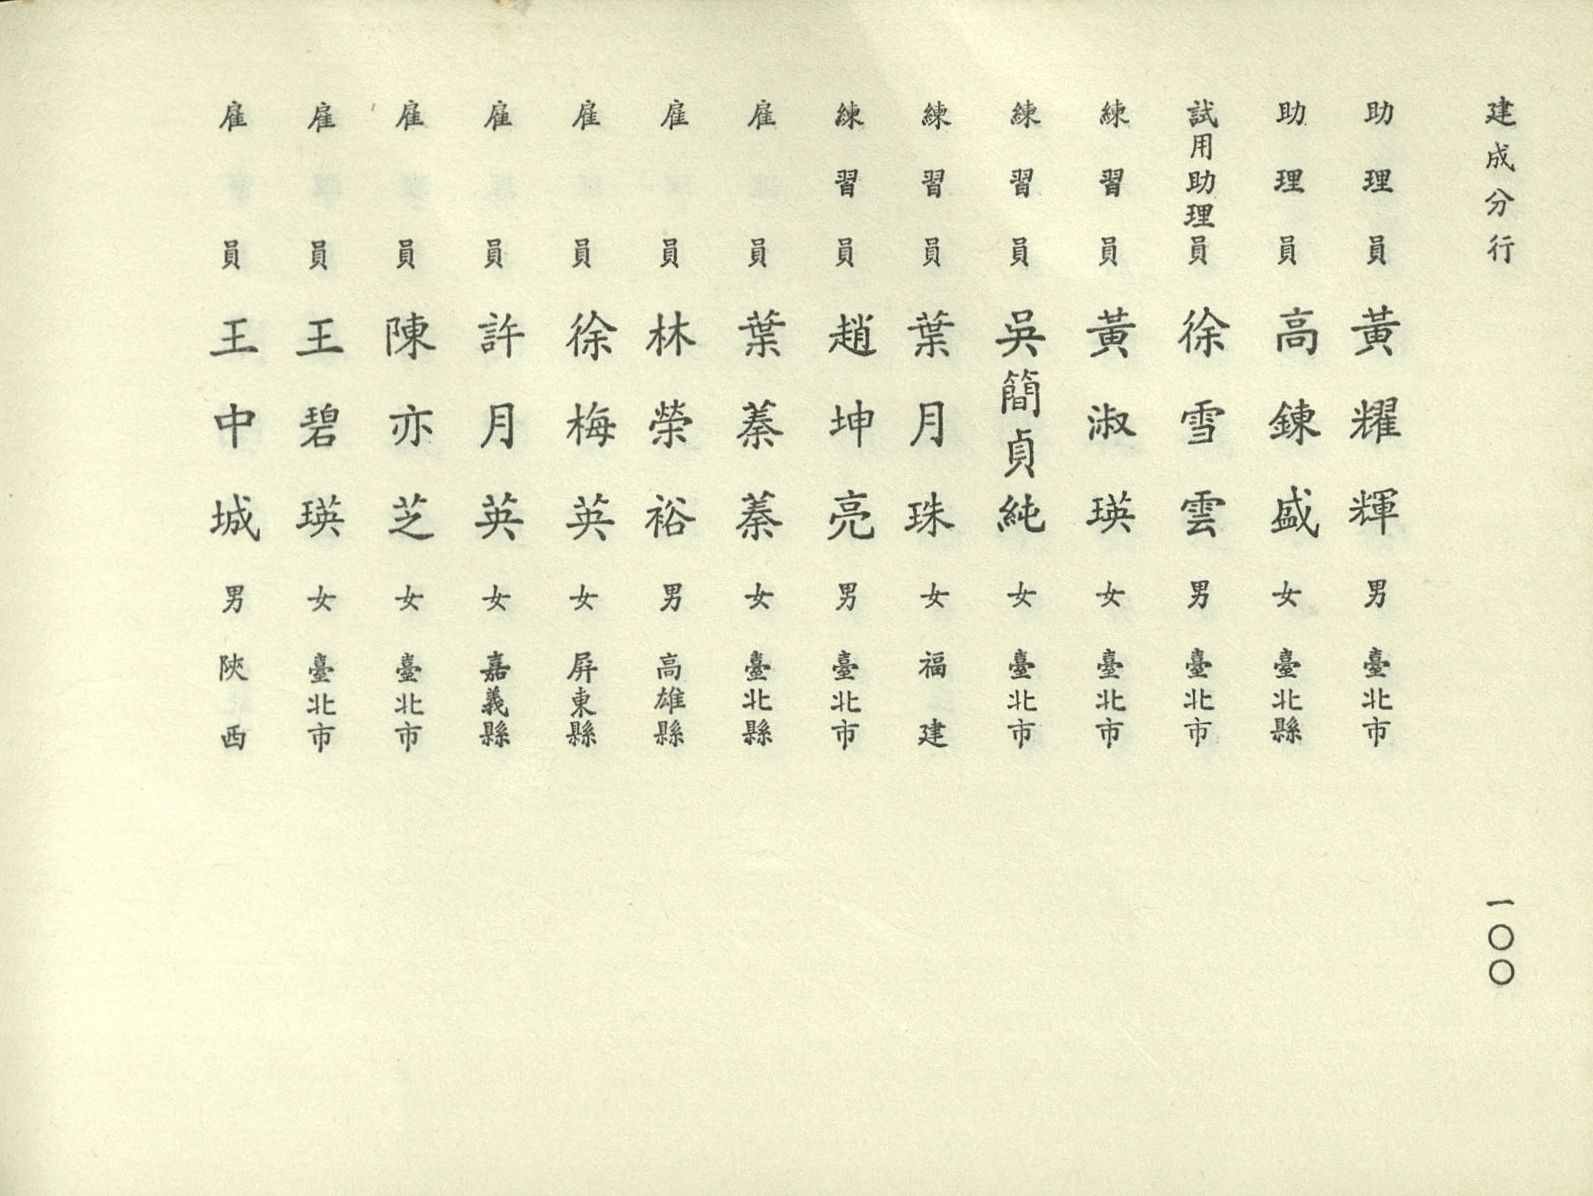 建成分行
一〇〇
助理員 黃耀輝 男 臺北市
助理員 高鍊盛 女 臺北縣
試用助理員 徐雪雲 男 臺北市
練習員 黃淑瑛 女 臺北市
練習員 吳簡貞純 女 臺北市
練習員 葉月珠 女 福建
練習員 趙坤亮 男 臺北市
雇員 葉蓁蓁 女 臺北縣
雇員 林榮裕 男 高雄縣
雇員 徐梅英 女 屏東縣
雇員 許月英 女 嘉義縣
雇員 陳亦芝 女 臺北市
雇員 王碧瑛 女 臺北市
雇員 王中城 男 陝西